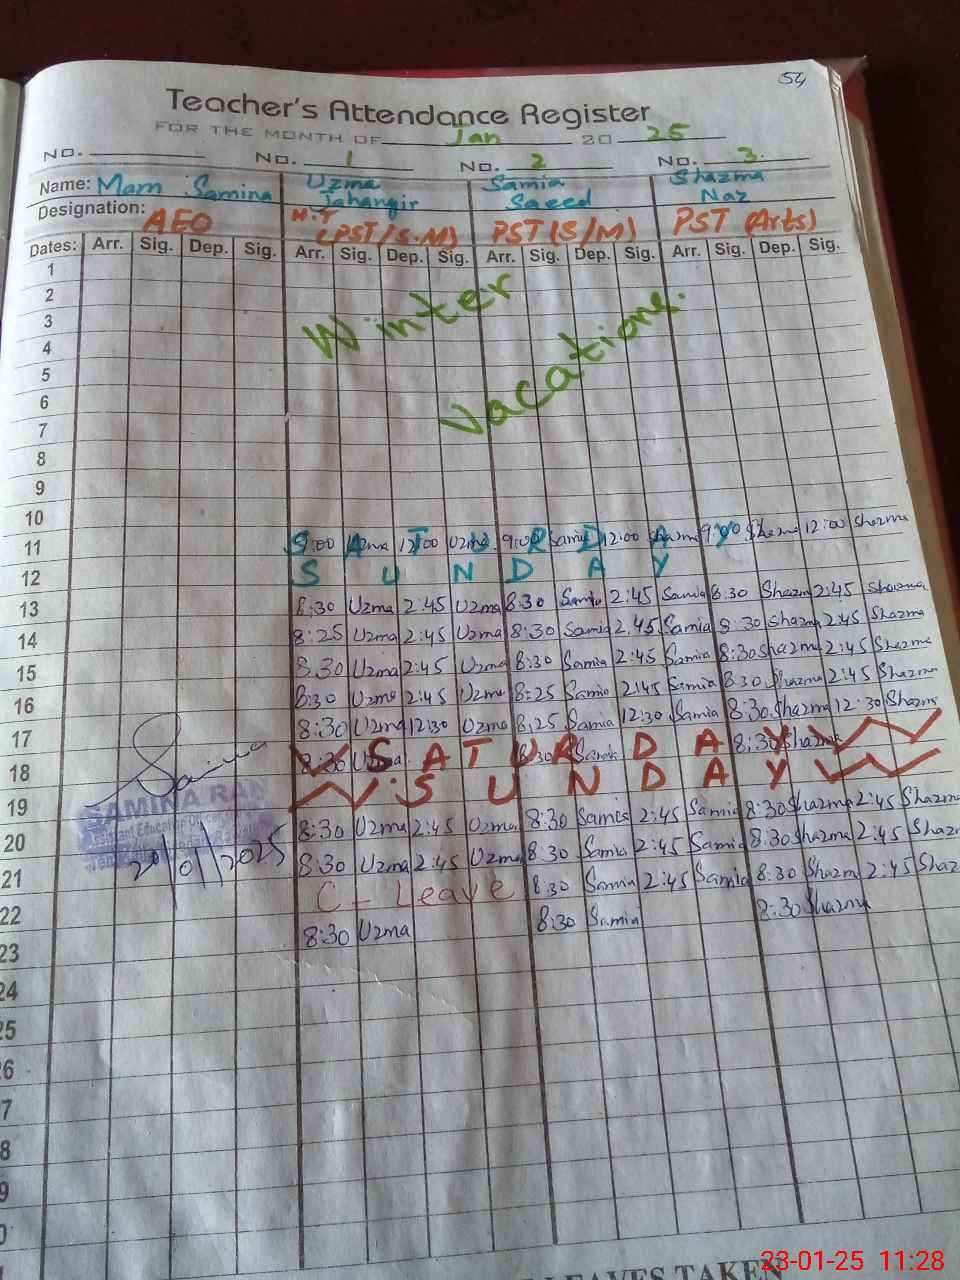 54
Teacher's Attendance Register
FOR THE MONTH OF Jan 20 25
No. No. 1 No. 2 No. 3.
Name: Mam Samina Uzma Jahangir Samia Saeed Shazma Naz
Designation: AEO H.T (PST/S.M) PST (S/M) PST (Arts)
Dates: Arr. Sig. Dep. Sig. Arr. Sig. Dep. Sig. Arr. Sig. Dep. Sig. Arr. Sig. Dep. Sig.
1
2
3
Winter
4
5
Vacations.
6
7
8
9
10
11 9:00 Uzma 12:00 Uzma 9:00 Samia 12:00 9:00 12:00 Shazma
SATURDAY
12 SUNDAY
13 8:30 Uzma 2:45 Uzma 8:30 Samia 2:45 Samia 8:30 Shazm 2:45 Shazma
14 8:25 Uzma 2:45 Uzma 8:30 Samia 2.45 Samia 8:30 Shazma 2:45 Shazma
15 8.30 Uzma 2:45 Uzma 8:30 Samia 2:45 Samia 8:30 Shazma 2:45 Shazma
16 8:30 Uzma 2:45 Uzma 8:25 Samia 2:45 Samia 8:30 Shazma 2:45 Shazma
17 8:30 Uzma 12:30 Uzma 8:25 Samia 12:30 Samia 8:30 Shazma 12:30 Shazma
18 8:30 Uzma 8:30 Samia 8:30 Shazma
SATURDAY
19 SUNDAY
20 8:30 Uzma 2:45 Uzma 8:30 Samia 2:45 Samia 8:30 Shazma 2:45 Shazma
21 8:30 Uzma 2:45 Uzma 8:30 Samia 2:45 Samia 8:30 Shazma 2:45 Shaz
22 C-Leave 8:30 Samia 2:45 Samia 8:30 Shazm 2:45 Shaz
23 8:30 Uzma 8:30 Samia 8:30 Shazma
24
25
6
7
8
9
0
Samina
SAMINA RAN
Assistant Education Officer
20/01/2025
LEAVES TAKEN
23-01-25 11:28